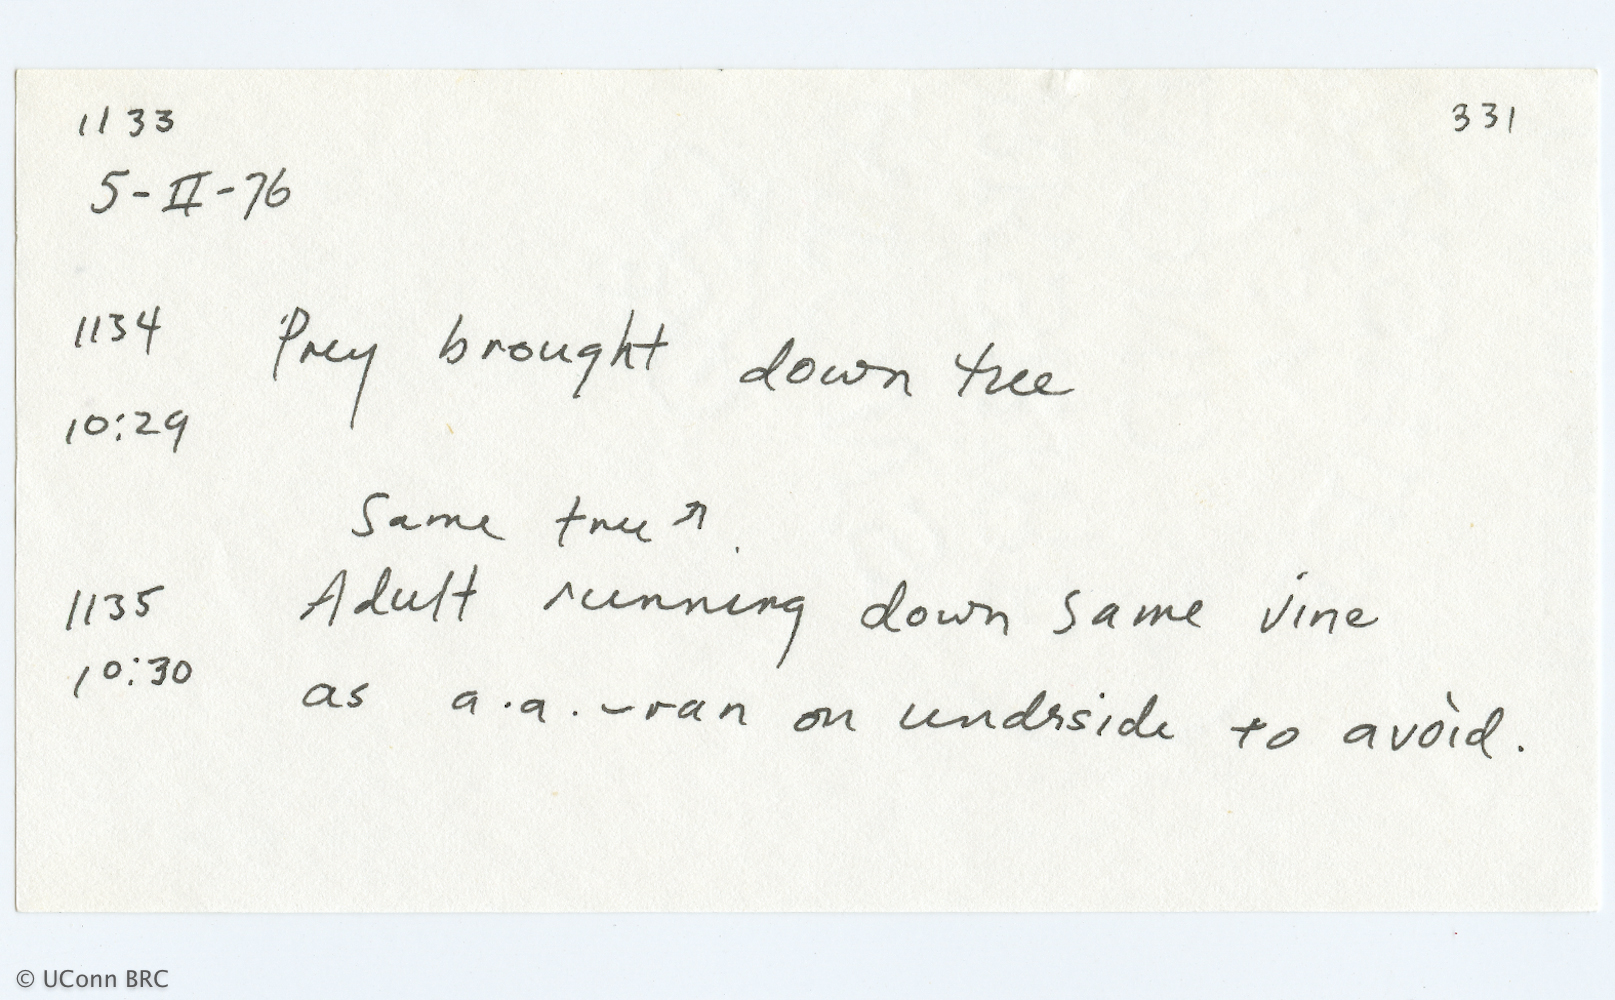 1133 331
5-II-76
1134 Prey brought down tree
10:29
Same tree ↗.
1135 Adult running down same vine
10:30 as a.a. - ran on undrside to avoid.
© UConn BRC